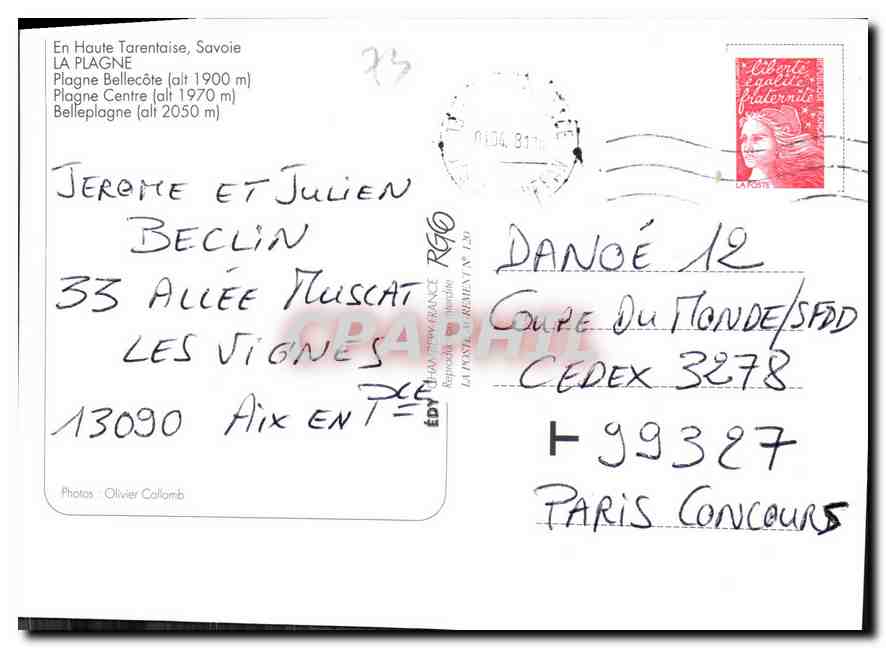 En Haute Tarentaise, Savoie
LA PLAGNE
Plagne Bellecôte (alt 1900 m)
Plagne Centre (alt 1970 m)
Belleplagne (alt 2050 m)
73
liberté
égalité
fraternité
RÉPUBLIQUE FRANÇAISE
LA POSTE
JEROME ET JULIEN
BECLIN
33 ALLÉE MUSCAT
LES VIGNES
13090 AIX EN PCE
Photos : Olivier Collomb
ÉDY CHAMBERY-FRANCE RGG
Reproduction interdite
LA POSTE AGREMENT N° 120
CPAPHIL
DANOÉ 12
COUPE DU MONDE/SFDD
CEDEX 3278
99327
PARIS CONCOURS